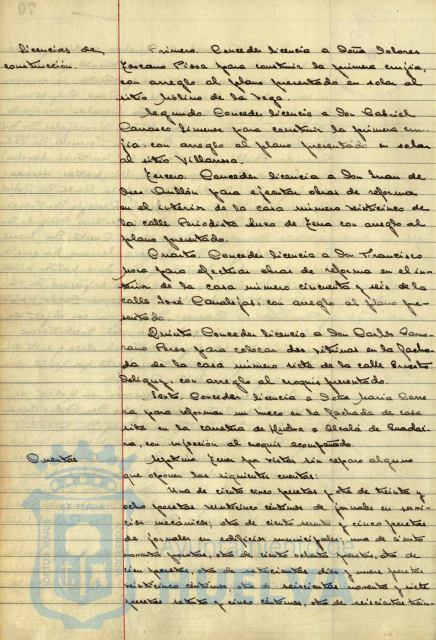 Licencias de
construcción.
Primero. Conceder licencia a Doña Dolores
Toscano Piosa para construir la primera crujía,
con arreglo al plano presentado en solar al
sitio Molino de la Vega.
Segundo. Conceder licencia a Don Gabriel
Carrasco Jimenez para construir la primera cru-
jía, con arreglo al plano presentado en solar
al sitio Villarosa.
Tercero. Conceder licencia a Don Juan de
Dios Aullón para ejecutar obras de reforma
en el interior de la casa número veinticinco de
la calle Periodista Luca de Tena con arreglo al
plano presentado.
Cuarto. Conceder licencia a Don Francisco
Mora para efectuar obras de reforma en el inte-
rior de la casa número cincuenta y seis de la
calle José Canalejas, con arreglo al plano pre-
sentado.
Quinto. Conceder licencia a Don Carlos Camo-
rano Perez para colocar dos vitrinas en la facha-
da de la casa número siete de la calle Ernesto
Deligny, con arreglo al croquis presentado.
Sexto. Conceder licencia a Doña María Carre-
ra para reformar un hueco en la fachada de casa
sita en la carretera de Huelva a Alcalá de Guadai-
ra, con sujeción al croquis acompañado.
Cuentas
Septimo. Tener por vistas sin reparo alguno
que oponer las siguientes cuentas:
Una de ciento cinco pesetas y otra de treinta y
ocho pesetas veinticinco céntimos de jornales en servi-
cios mecánicos; otra de ciento setenta y cinco pesetas
de jornales en edificios municipales; una de ciento
noventa pesetas, otra de ciento ochenta pesetas, otra de
cien pesetas, otra de novecientas diez y nueve pesetas
veinticinco céntimos, otra de seiscientas noventa y siete
pesetas setenta y cinco céntimos, otra de seiscientas trein-
HUELVA